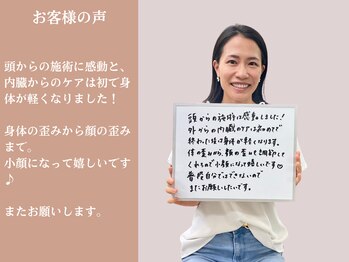 お客様の声
頭からの施術に感動と、
内臓からのケアは初で身
体が軽くなりました！
身体の歪みから顔の歪み
まで。
小顔になって嬉しいです
♪
またお願いします。
頭からの施術は感動しました！
外からの内臓のケアは初めてで
終わった後は身体が軽くなります。
体の歪みから、顔の歪みも調節して
くれるので小顔になって嬉しいです♡
普段自分ではできないので
またお願いしたいです。